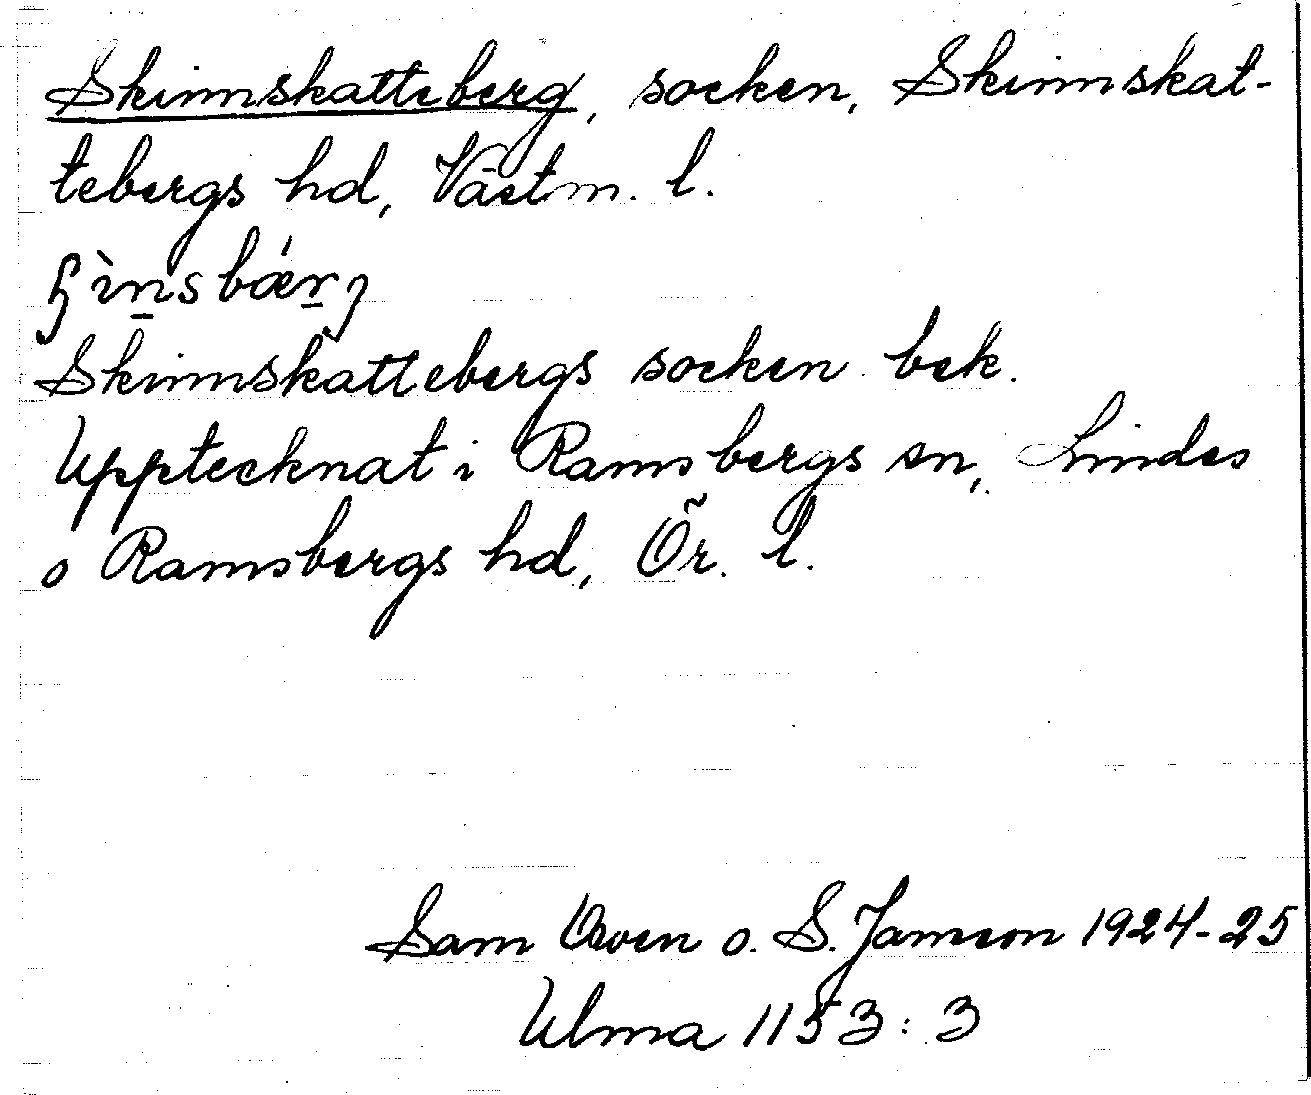 Skinnskatteberg, socken, Skinnskat-
tebergs hd, Västm. l.
Skinnskattebergs socken bek.
Upptecknat i Ramsbergs sn, Lindes
o Ramsbergs hd, Ör. l.
Sam Owen o. S. Jansson 1924-25
Ulma 1153:3